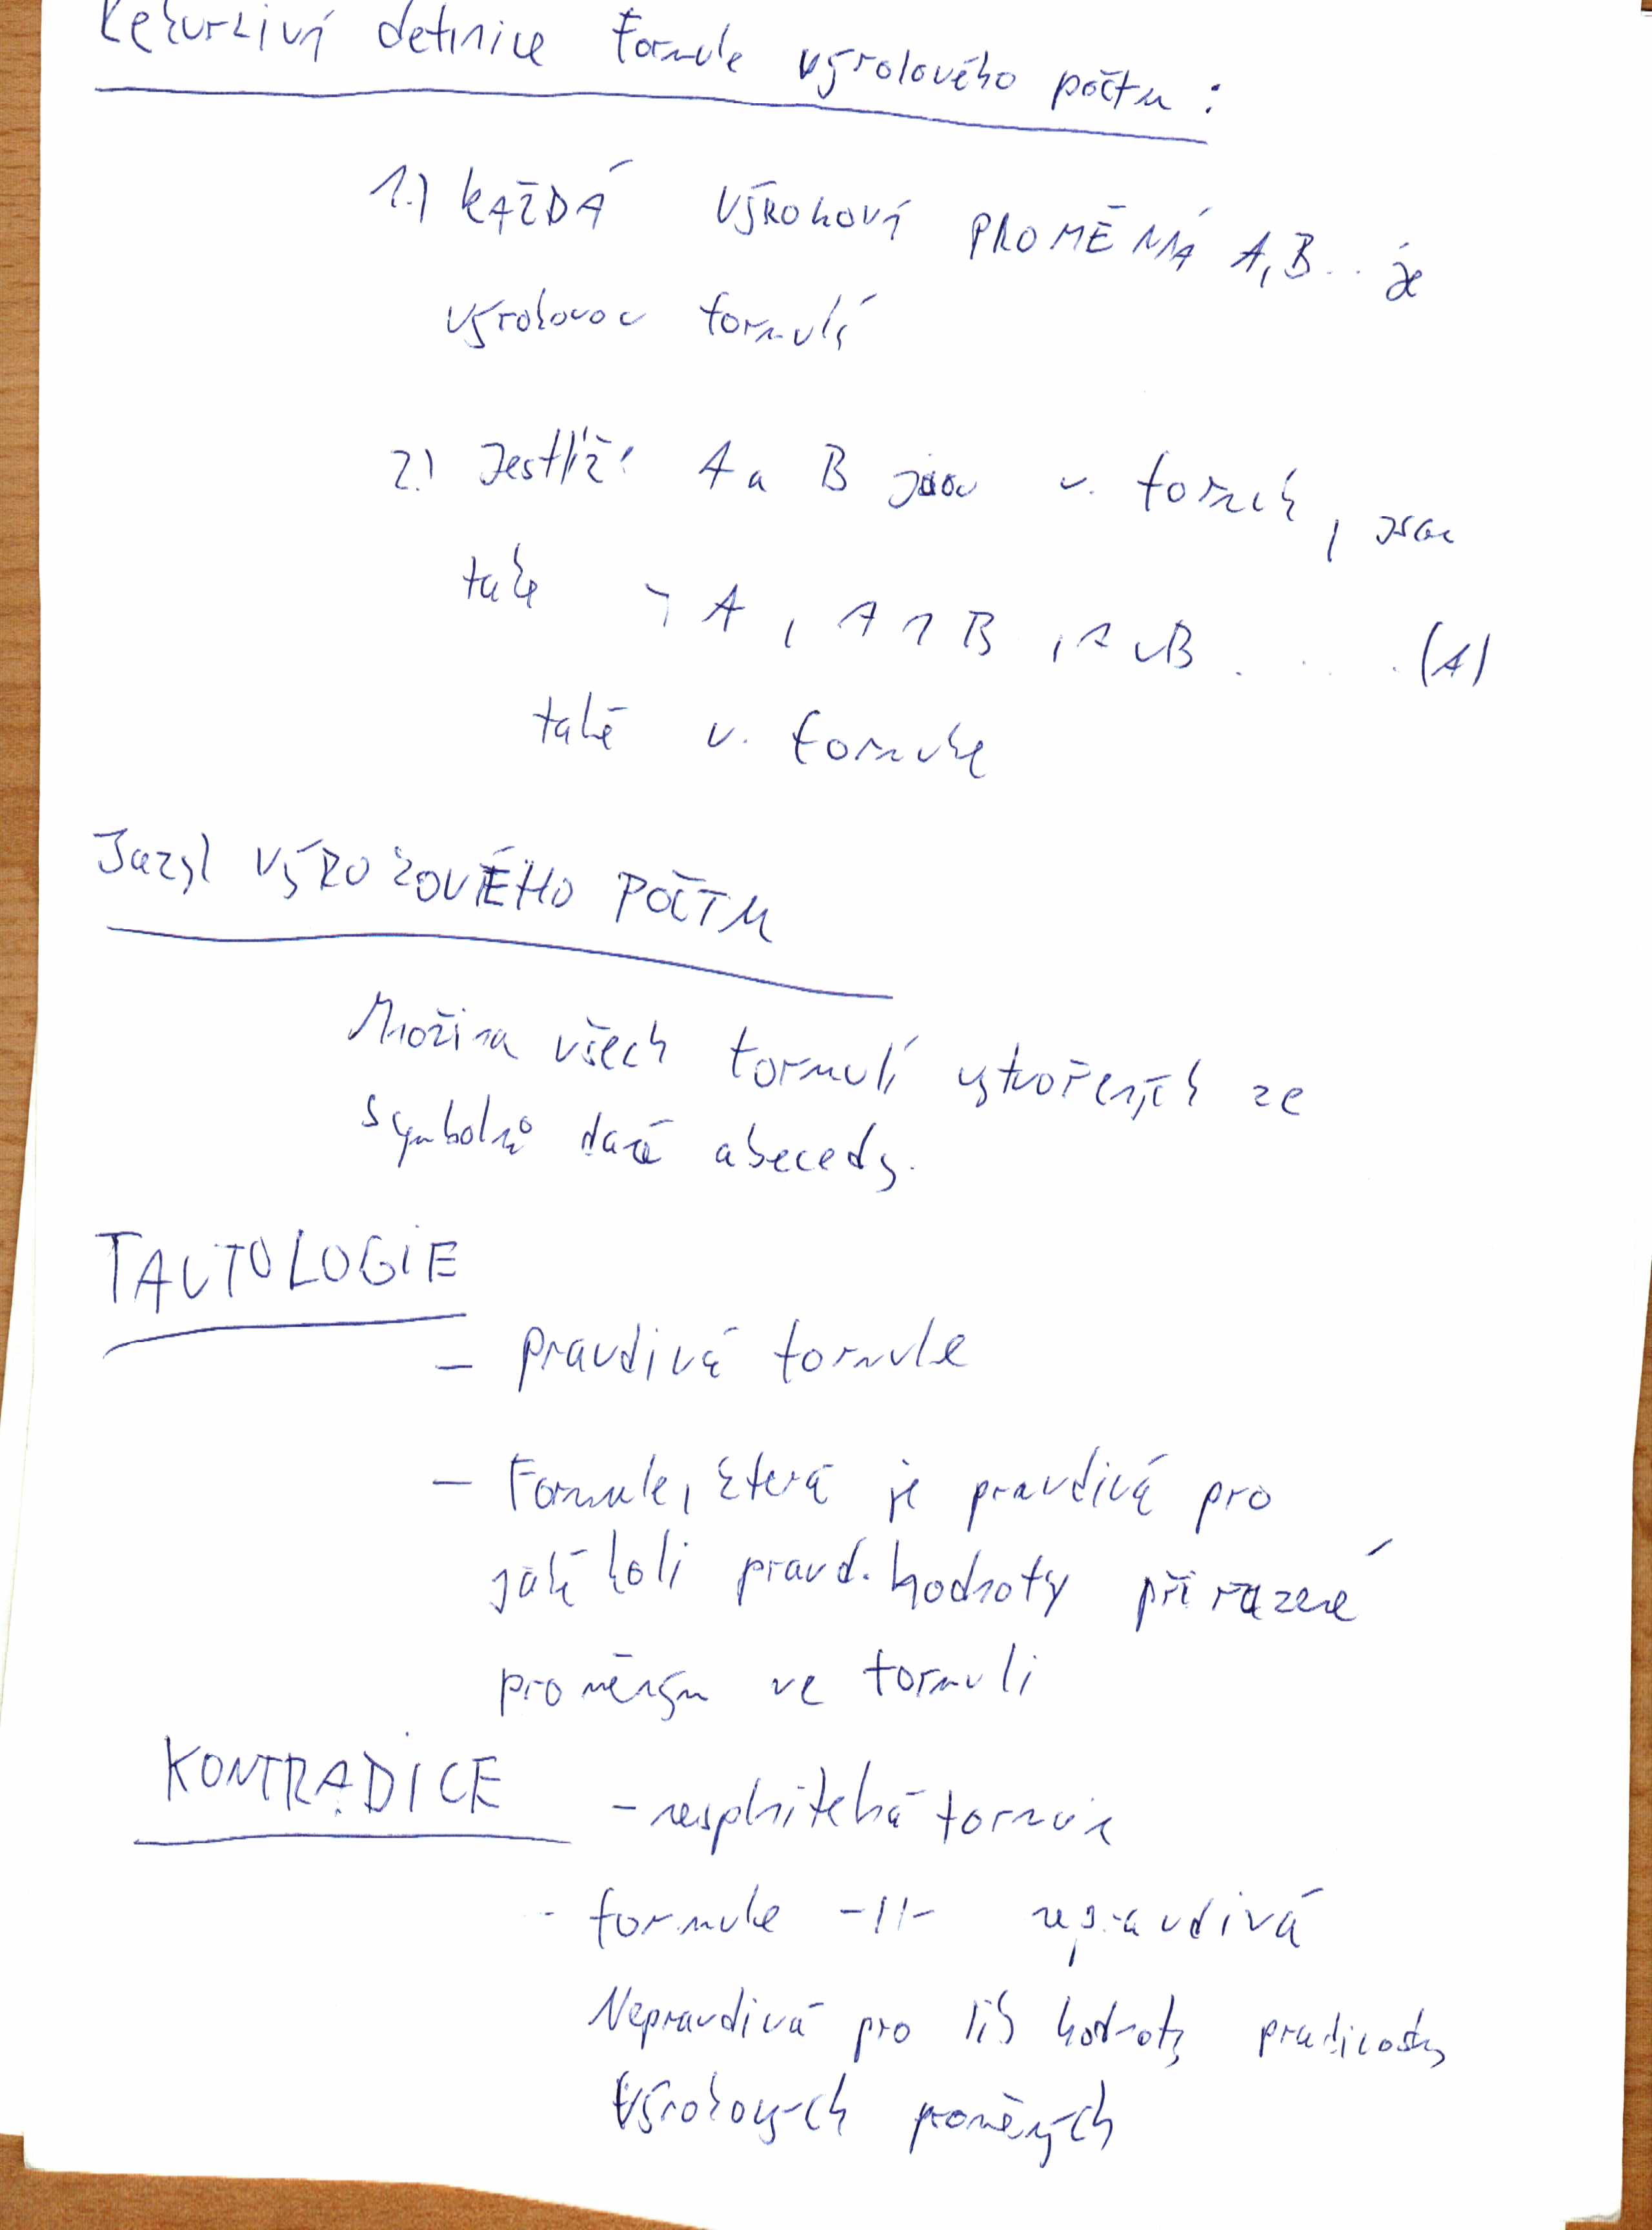 Rekurzivní definice formule výrokového počtu :
1.) KAŽDÁ VÝROKOVÁ PROMĚNÁ A, B.. je
výrokovou formulí
2.) Jestliže A a B jsou v. formule, jsou
také ¬A, A ∧ B, A ∨ B . . . . (A)
také v. formule
Jazyk VÝROKOVÉHO POČTU
Množina všech formulí vytvořených ze
symbolů dané abecedy.
TAUTOLOGIE
- pravdivá formule
- Formule, která je pravdivá pro
jakékoli pravd. hodnoty přiřazené
proměným ve formuli
KONTRADICE
- nesplnitelná formule
- formule -//- nepravdivá
Nepravdivá pro lib hodnoty pravdivosti
Výrokových proměných